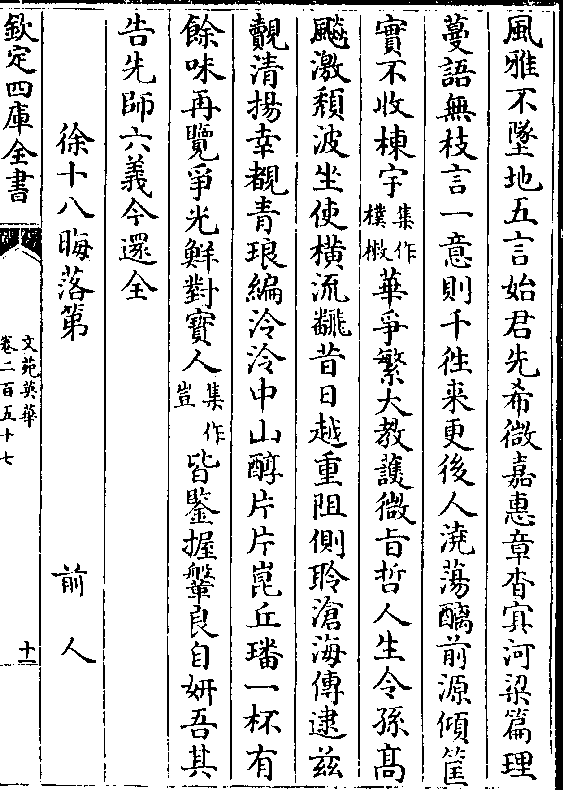 風雅不墜地五言始君先希微嘉惠章杳冥河梁篇理
蔓語無枝言一意則千往来更後人澆蕩醨前源傾筐
實不收棟宇集作樸樕華爭繁大教護微旨哲人生令孫高
飈激頽波坐使横流飜昔日越重阻側聆滄海傳逮兹
覿清揚幸覩青琅編泠泠中山醇片片崑丘璠一杯有
餘味再覽爭光鮮對寳人集作豈皆鑒握鞶良自妍吾其
告先師六義今還全
徐十八晦落第 前人
欽定四庫全書
文苑英華
卷二百五十七
十一